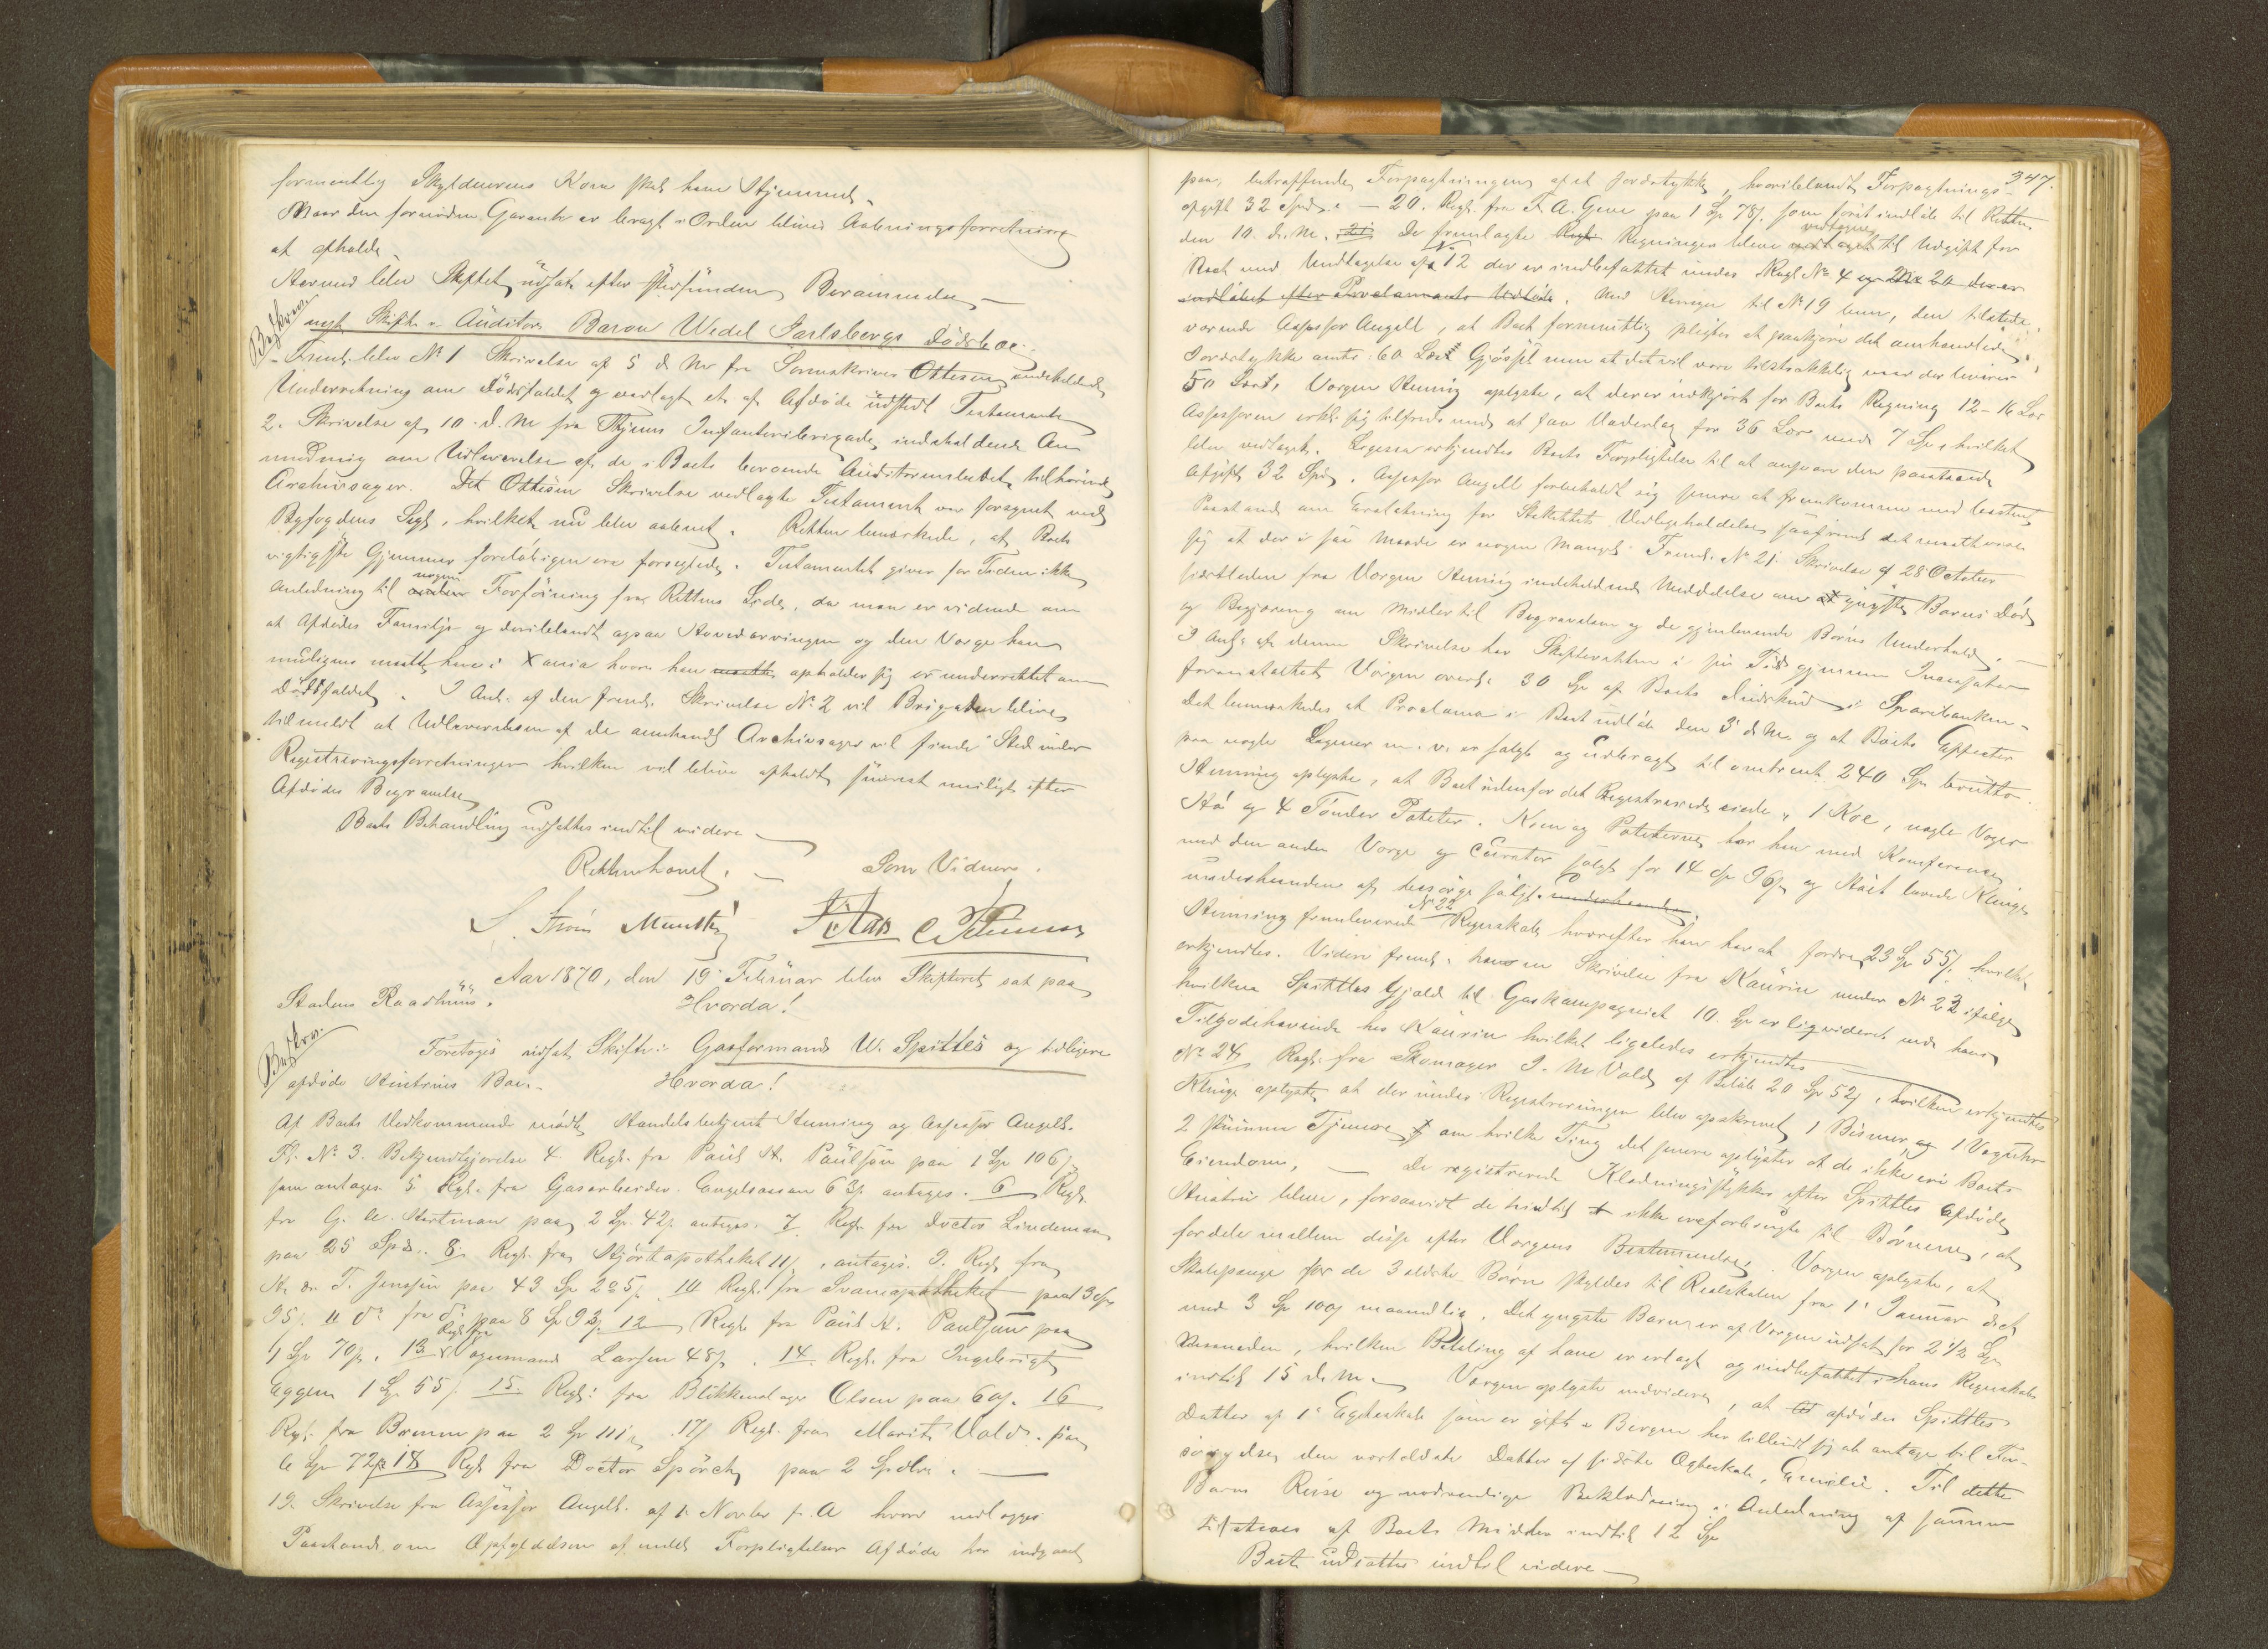 formentlig Skyldnerens Kone skal have Hjemmel.
Naar den fornødne Garanti er bragt i Orden bliver Aabningsforretning
at afholde.
Hermed blev Skiftet udsat efter Berammelse
nyt Skifte i Auditør Baron Wedel Jarlsbergs Dødsboe.
Freml. blev No 1 Skrivelse af 5 d. M. fra Sorenskriver Ottesen indeholdende
Underretning om Dødsfaldet og vedlagt et af Afdøde udstedt Testamente
2. Skrivelse af 10 d. M. fra Thjems Infanteribrigade indeholdende An
modning om Udleverelse af de i Boets beroende Auditørembedet tilhørende
Archivsager. Det Ottesens Skrivelse vedlagte Testament var forsegnet med
Byfogdens Segl, hvilket nu blev aabnet. Retten bemærkede, at Boets
vigtigste Gjemmer foreløbigen ere forseglede. Testamentet giver for Tiden ikke
Anledning til nogen Forføining fra Rettens Side, da man er vidende om
at Afdødes Familje og deriblandt ogsaa Hovedarvingen og den Værge han
muligens maatte have i Xania hvor han opholder sig er underrettet om
Dødsfaldet. I Anl. af den freml. Skrivelse No 2 vil Brigaden blive
tilmeldt at Udleverelsen af de omhandl. Archivsager vil finde Sted under
Registreringsforretningen hvilken vil blive afholdt snarest muligt efter
Afdødes Begravelse
Boets Behandling udsættes indtil videre
Retten hævet. Som Vidner.
Aar 1870, den 19 Februar blev Skifteret sat paa
Stadens Raadhuus. Hvorda!
Foretoges udsat Skifte i Gasformand W. Spittles og tidligere
afdøde Hustrues Boe. Hvorda!
Af Boets Vedkommende mødte Handelsbetjent Henning og Assessor Angell.
Fl. No 3. Bekjendtgjørelse 4. Regl. fra Paul H. Paulsen paa 1 Sp 106
som antages 5. Regl. fra Gasarbeider Engelsaasen 63 antages. 6 Regl.
fra G. A. Hartman paa 2 Sp. 42 antages. 7 Regl. fra Doctor Lindeman
paa 25 Spd. 8. Regl. fra Hjorteapotheket 11, antages. 9. Regl. fra
T. Jenssen paa 43 Sp 5. 10 Regl. fra Svaneapotheket paa 13 Sp
95. 11 do fra do paa 8 Sp 93. 12 Regl. fra Paul H. Paulsen paa
1 Sp 70. 13 Regl. fra Vognmand Larsen 48. 14. Regl. fra Ingebrigt
Eggen 1 Sp 55. 15. Regl. fra Blikkenslager Olsen paa 60. 16
Regl. fra Bromm paa 2 Sp 111. 17 Regl. fra Marit Vold paa
6 Sp 72. 18 Regl. fra Doctor Spørck paa 2 Spdlr.
19. Skrivelse fra Assessor Angell af 1 Novber f. A hvori nedlægges
Paastand om Opfyldelsen af Forpligtelser Afdøde har indgaaet
347.
paa, betræffende Forpagtningen af et Jordstykke, hvoriblandt Forpagtnings
afgift 32 Spd. — 20. Regl. fra F. A. Geve paa 1 Sp 78. som først indløb til Retten
den 10. d. M. De fremlagte Regninger bleve vedtagne til Udgift for
Boet med Undtagelse af No 12 der er indbefattet under Regl. No 4 og No 20 der er
indløbet efter Proclamaets Udløb. Med Hensyn til No 19 , den tilstede
værende Assessor Angell, at Boet formentlig pligter at paakjøre det omhandlede
Jordstykke 60 Læs Gjødsel men at det vil være tilstrækkelig naar der leveres
50 Læs. Værgen Henning oplyste, at der er udkjørt for Boets Regning 12-16 Læs
Assessoren erkl. sig tilfreds med at faa Vederlag for 36 Læs med 7 Sp, hvilket
blev vedtaget. Ligesaa erkjendtes Boets Forpligtelse til at ansvare den paastaaede
Afgift 32 Spd. Assessor Angell forbeholdt sig senere at fremkomme med bestemt
Paastand om Erstatning for Stakittets Vedligeholdelse saafremt det maatte vise
sig at der i saa Maade er nogen Mangel. Freml. No 21. Skrivelse af 28 October
sidstleden fra Værgen Henning indeholdende Meddelelse om yngste Barns Død
og Begjæring om Midler til Begravelsen og de gjenlevende Børns Underhold.
I Anl. af denne Skrivelse har Skifteretten i sin Tid gjennem Incassator
foranstaltet Værgen overs. 30 Sp af Boets Indskud i Sparebanken.
Det bemærkedes at Proclama i Boet udløb den 3 d. M. og at Boets Effecter
paa nogle Sagener m. v. er solgt og udbragt til omtrent 240 Sp brutto.
Henning oplyste, at Boet udenfor det Registrerede eiede 1 Koe, nogle Voger
Hø og 4 Tønder Poteter. Koen og Poteterne har han med Konference
med den anden Værge og Curator solgt for 14 Sp 96 og Høet lovede Klinge
underhaanden at besørge solgt.
Henning fremleverede No 22 Regnskab, hvorefter han har at fordre 23 Sp 55. hvilket
erkjendtes. Videre freml. han en Skrivelse fra Kaurin under No 23 ifølge
hvilken Spittles Gjæld til Gaskompagniet 10 Sp er liqvideret med hans
Tilgodehavende hos Kaurin hvilket ligeledes erkjendtes
No 24 Regl. fra Skomager I. M Vold af Beløb 20 Sp 52, hvilken erkjendtes
Klinge oplyste, at der under Registreringen blev opskrevet 1 Bismer, og 1 Væguhr
2 Stumme Tjenere om hvilke Ting det senere oplystes at de ikke ere Boets
Eiendom, De registrerede Klædningsstykker efter Spittles Afdøde
Hustru bleve, forsaavidt de hidtil ikke ere forbrugte til Børnene, at
fordele mellem disse efter Værgens Bestemmelse. Værgen oplyste, at
Skolepenge for de 3 ældste Børn skyldes til Realskolen fra 1 Januar d. A.
med 3 Sp 100 maanedlig. Det yngste Barn er af Værgen udsat for 2 1/2 Sp
Maaneden, hvilken Betaling af ham er erlagt og indbefattet i hans Regnskab
indtil 15 d. M. Værgen oplyste endvidere, at afdødes Spittles
Datter af 1 Ægteskab som er gift i Bergen har tilbudt sig at antage til For-
sørgelse, den næstældste Datter af sidste Ægteskab, Emilie. Til dette
Barns Reise og nødvendige Beklædning i Anledning af samme
af Boets Midler indtil 12 Sp
Boet udsattes indtil videre